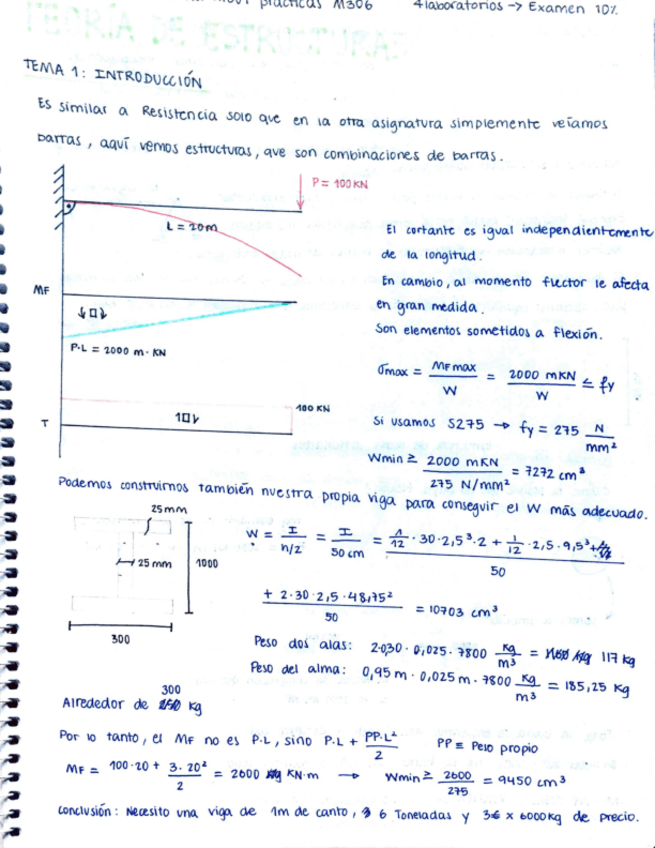 prácticas M306 4 laboratorios → Examen 10%
TEORÍA DE ESTRUCTURAS
TEMA 1: INTRODUCCIÓN
Es similar a Resistencia solo que en la otra asignatura simplemente veíamos
barras, aquí vemos estructuras, que son combinaciones de barras.
P = 100 KN
L = 20m
El cortante es igual independientemente
de la longitud.
MF
En cambio, al momento flector le afecta
en gran medida.
Son elementos sometidos a flexión.
P·L = 2000 m·KN
σmax = MFmax / W = 2000 mKN / W ≤ fy
100 KN
T
Si usamos S275 → fy = 275 N/mm²
Wmin ≥ 2000 mKN / 275 N/mm² = 7272 cm³
Podemos construirnos también nuestra propia viga para conseguir el W más adecuado.
25mm
25 mm
1000
300
W = I / h/2 = I / 50 cm = 1/12 · 30 · 2,5³ · 2 + 1/12 · 2,5 · 9,5³ + / 50
+ 2 · 30 · 2,5 · 48,75² / 50 = 10703 cm³
Peso dos alas: 2·0,30 · 0,025 · 7800 Kg/m³ = 117 kg
Peso del alma: 0,95 m · 0,025 m · 7800 Kg/m³ = 185,25 Kg
300
Alrededor de kg
Por lo tanto, el MF no es P·L, sino P·L + PP·L²/2 PP ≡ Peso propio
MF = 100·20 + 3·20²/2 = 2600 KN·m → Wmin ≥ 2600/275 = 9450 cm³
Conclusión: Necesito una viga de 1m de canto, 6 Toneladas y 3€ x 6000Kg de precio.